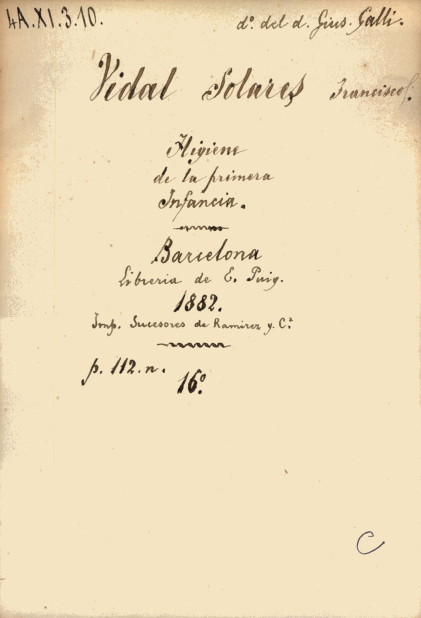 4A.XI.3.10.
d.º del d. Gius. Galli.
Vidal Solares, Francisco.
Higiene
de la primera
Infancia.
Barcelona
Libreria de E. Puig.
1882.
Imp. Sucesores de Ramirez y C.ª
p. 112. n.
16º
C